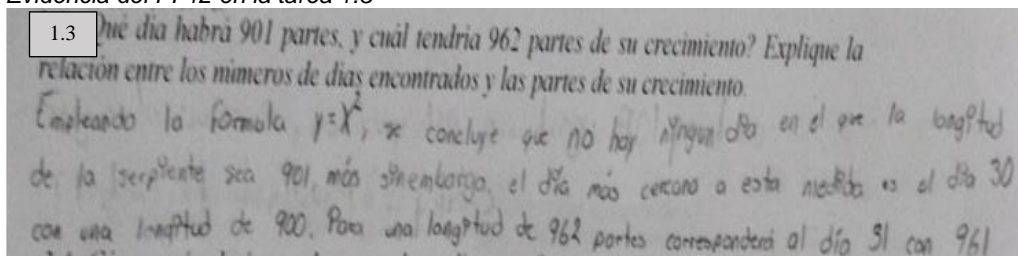 Evidencia del PF12 en la tarea 1.3
1.3 Qué día habrá 901 partes, y cuál tendría 962 partes de su crecimiento? Explique la
relación entre los números de días encontrados y las partes de su crecimiento.
Empleando la formula y=x², se concluye que no hay ningun día en el que la longitud
de la serpiente sea 901, más sinembargo, el día más cercano a esta medida es el día 30
con una longitud de 900. Para una longitud de 962 partes corresponderá al día 31 con 961